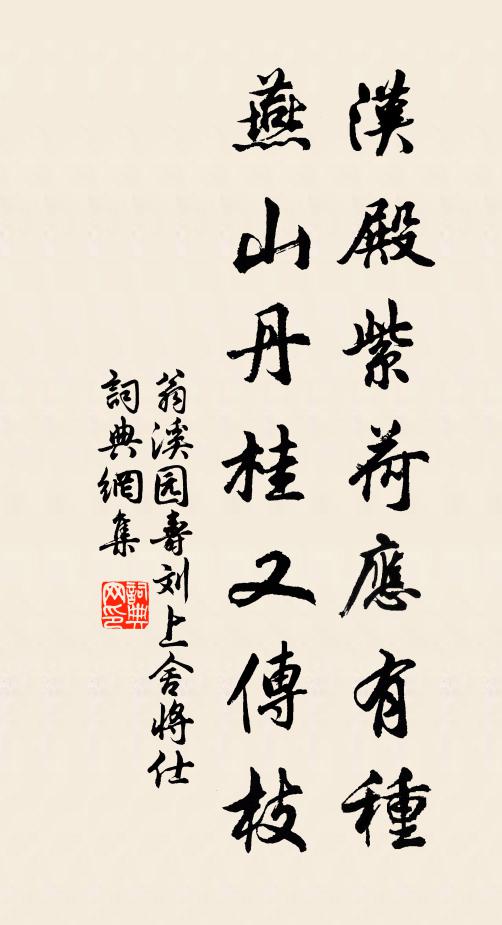 漢殿紫荷應有種
燕山丹桂又傳枝
翁溪园壽刘上舍將仕
詞典網集
詞典网印